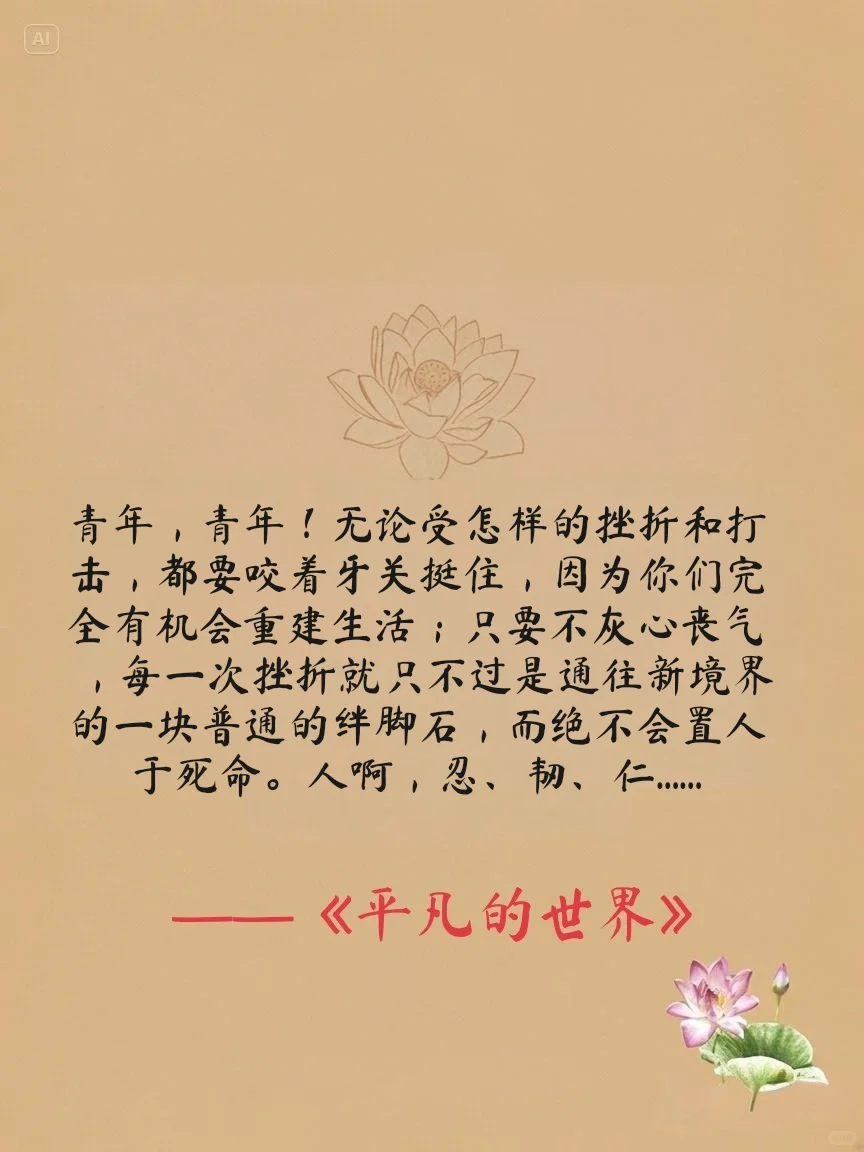 AI
青年，青年！无论受怎样的挫折和打
击，都要咬着牙关挺住，因为你们完
全有机会重建生活；只要不灰心丧气
，每一次挫折就只不过是通往新境界
的一块普通的绊脚石，而绝不会置人
于死命。人啊，忍、韧、仁......
——《平凡的世界》